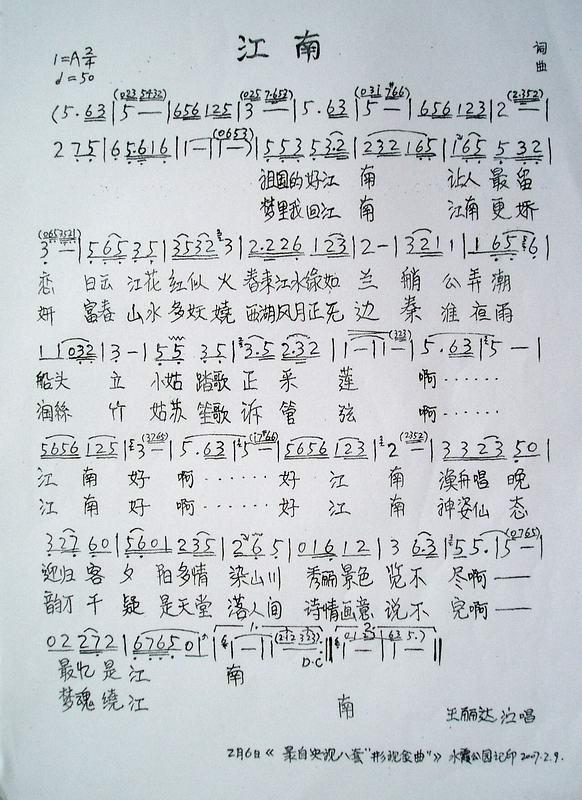 江南
1=A 2/4
♩=50
词
曲
(5.63|5—|656 125|3—|5.63|5—|656 123|2—|
275|65616|1—|1—|553 53.2|232 165|165 532|
祖国的好江 南 让人 最 留
梦里我回江 南 江南 更 娇
3—|565 35|3532 3|2.226 123|2—|321 1|165 6|
恋 白云 江花 红似 火 春来江水绿如 兰 艄 公弄 潮
妍 富春 山水 多妖 娆 西湖风月正无 边 秦 淮夜雨
11032|3—|55 35|3.5 2.32|1—|1—|5.63|5—|
船头 立 小姑 踏歌 正 采 莲 啊······
润丝 竹 姑苏 笙歌 诉 管 弦 啊······
5656 125|3—|5.63|5—|5656 123|2—|3323 50|
江 南 好 啊······ 好 江 南 渔舟唱 晚
江 南 好 啊······ 好 江 南 神姿仙 态
327 60|5601 235|265|01612|3 63|55.|5—|
迎归 客 夕 阳多情 染山川 秀丽景色 览不 尽啊——
韵才 千 疑 是天堂 落人间 诗情画意 说不 完啊——
02272|67650|
D.C
最忆 是江 南
梦魂 绕江 南
王丽达 演唱
2月6日《 录自央视八套"影视金曲"》 水霞公园记印 2007.2.9.